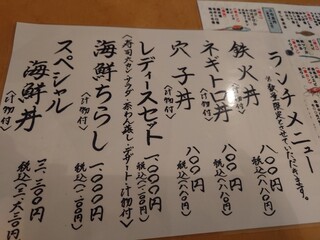 ランチメニュー
※数量限定とさせていただきます。
鉄火丼〈汁物付〉 八〇〇円 税込(八八〇円)
ネギトロ丼〈汁物付〉 八〇〇円 税込(八八〇円)
穴子丼〈汁物付〉 八〇〇円 税込(八八〇円)
レディースセット 一、〇〇〇円 税込(一、一〇〇円)
〈寿司六カン・サラダ・茶わん蒸し・デザート・汁物付〉
海鮮ちらし〈汁物付〉 一、〇〇〇円 税込(一、一〇〇円)
スペシャル
海鮮丼〈汁物付〉 三、三〇〇円 税込(三、六三〇円)